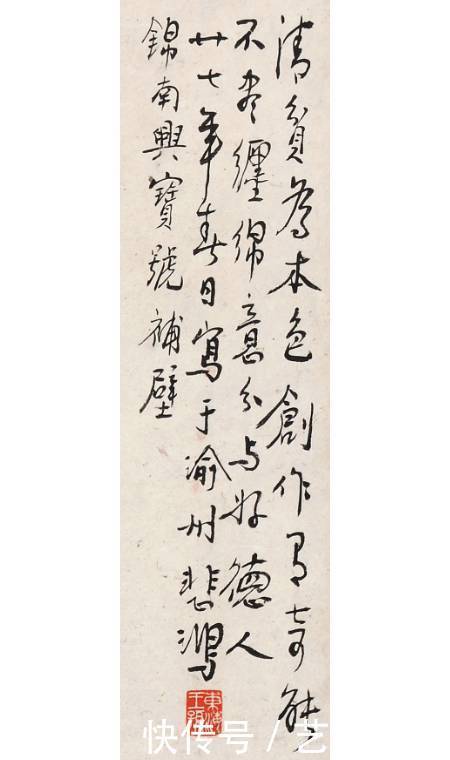 清貧為本色創作有奇能
不盡纏綿意分与好德人
廿七年春日寫于渝州悲鴻
錦南興寶號補壁
東海王孫
快传号 / 艺